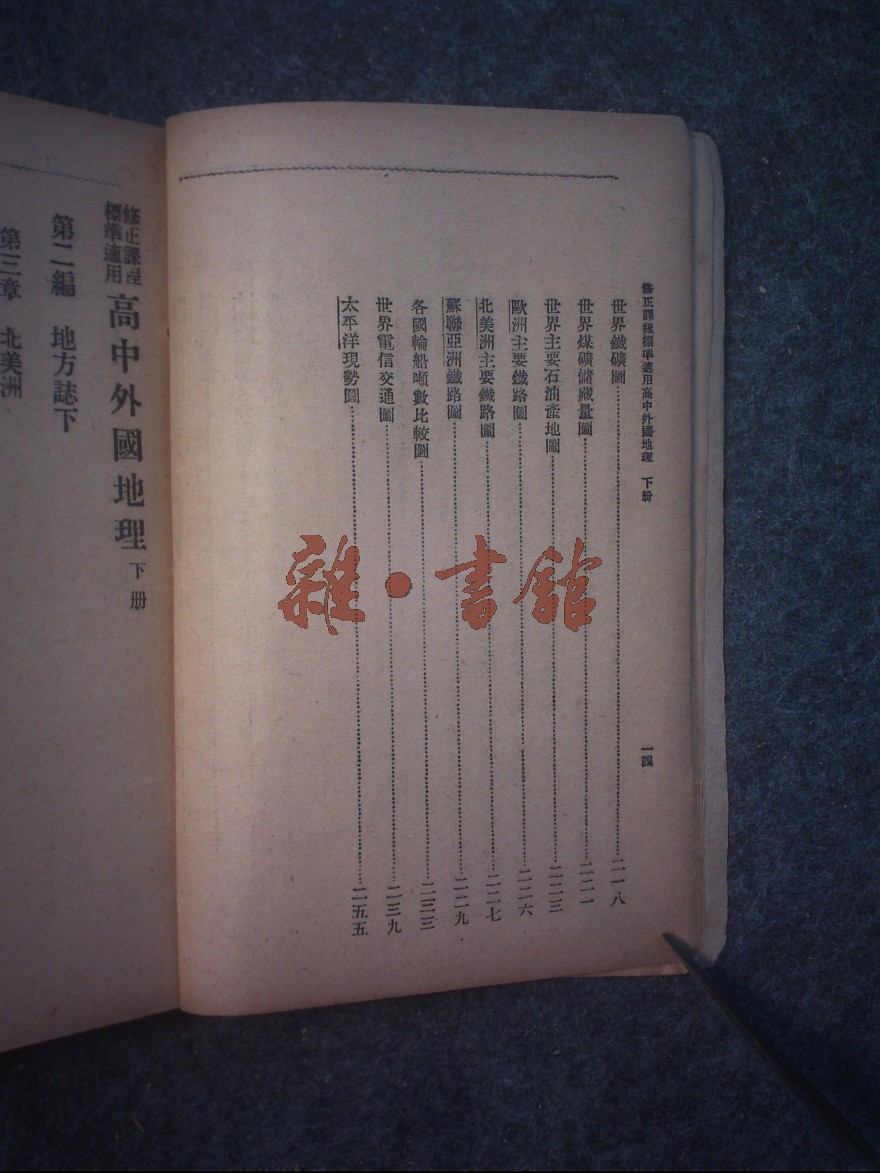 修正課程標準適用高中外國地理 下册 一四
世界鐵礦圖……二一八
世界煤礦儲藏量圖……二二一
世界主要石油產地圖……二二三
歐洲主要鐵路圖……二二六
北美洲主要鐵路圖……二二七
蘇聯亞洲鐵路圖……二二九
各國輪船噸數比較圖……二三三
世界電信交通圖……二三九
太平洋現勢圖……二五五
修正課程
標準適用
高中外國地理 下册
第二編 地方誌下
第三章 北美洲
雜·書館